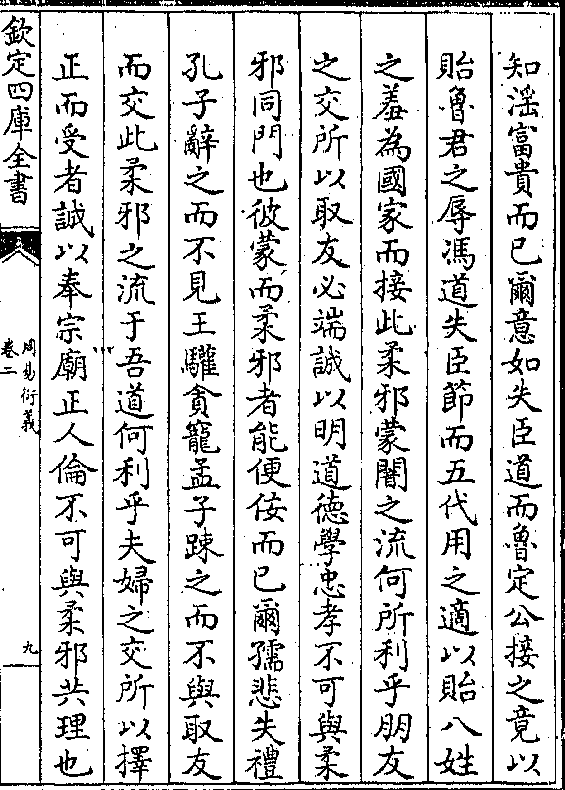 知滛富貴而已爾意如失臣道而魯定公接之竟以
貽魯君之辱馮道失臣節而五代用之適以貽八姓
之羞為國家而接此柔邪蒙闇之流何所利乎朋友
之交所以取友必端誠以明道德學忠孝不可與柔
邪同門也彼蒙而柔邪者能便佞而已爾孺悲失禮
孔子辭之而不見王驩貪寵孟子踈之而不與取友
而交此柔邪之流于吾道何利乎夫婦之交所以擇
正而受者誠以奉宗廟正人倫不可與柔邪共理也
欽定四庫全書
周易衍義
卷二
九